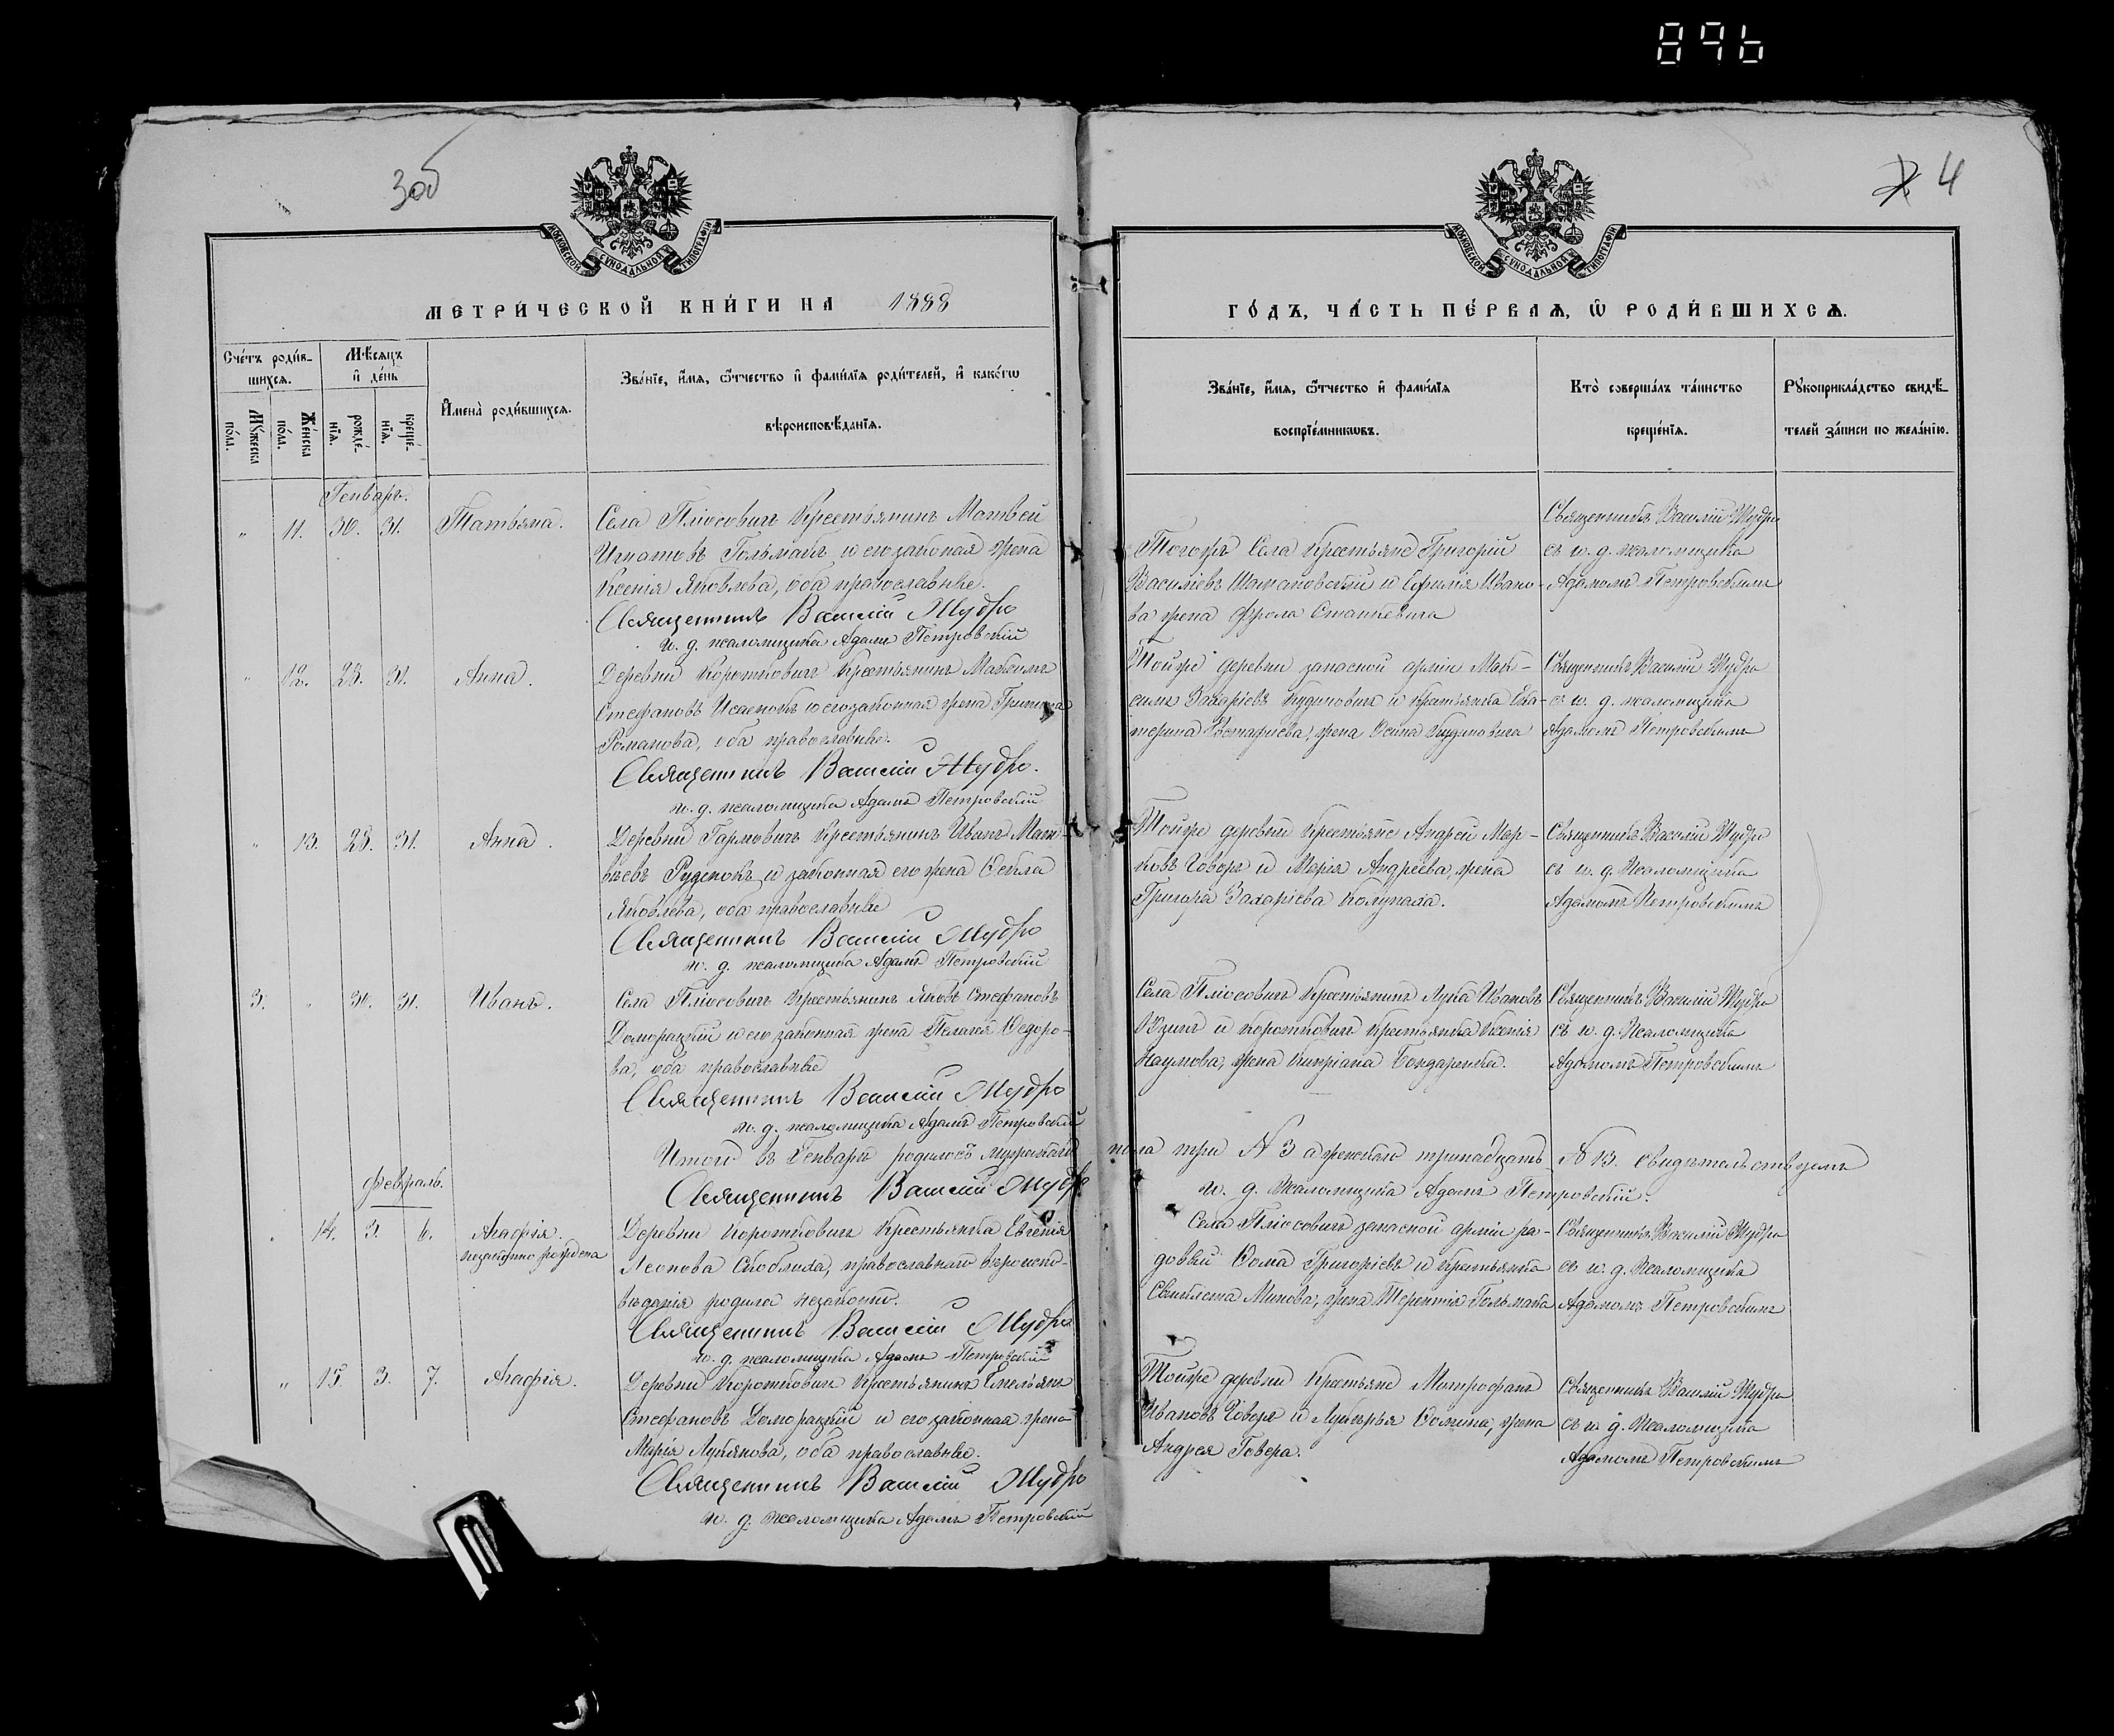 896
3об
4
МОСКОВСКОЙ СѴНОДАЛЬНОЙ ТИПОГРАФІИ
МОСКОВСКОЙ СѴНОДАЛЬНОЙ ТИПОГРАФІИ
МЕТРИ́ЧЕСКОЙ КНИ́ГИ НА 1888
ГО́ДЪ, ЧА́СТЬ ПЕ́РВАѦ, Ѡ҆ РОДИ́ВШИХСѦ.
Сче́тъ роди́вшихсѧ.
Мѣ́сѧцъ и҆ де́нь
Мꙋ́жеска по́ла.
Же́нска по́ла.
рожде́нїѧ.
креще́нїѧ.
И҆мена̀ роди́вшихсѧ.
Зва́нїе, и҆́мѧ, ѻ҆́тчество и҆ фами́лїѧ роди́телей, и҆ како́гѡ
вѣроисповѣ́данїѧ.
Зва́нїе, и҆́мѧ, ѻ҆́тчество и҆ фами́лїѧ
воспрїе́мникѡвъ.
Кто̀ соверша́лъ та́инство
креще́нїѧ.
Рꙋкоприкла́дство свидѣ́-
телей за́писи по жела́нїю.
Генварь.
" 11. 30. 31. Татьяна.
Села Плюсовичъ Крестьянинъ Матвей
Игнатовъ Гольмакъ и его законая жена
Ксенія Яковлева, оба православные.
Священникъ Василій Мудро
и. д. псаломщика Адамъ Петровскій
Тогожъ Села Крестьяне Григорій
Василіевъ и Ефимія Ивано-
ва жена Фрола Станкевича
Священникъ Василій Мудро
съ и. д. псаломщика
Адамомъ Петровскимъ
" 12. 28. 31. Анна.
Деревни Коротковичъ Крестьянинъ Максимъ
Стефановъ Исаенокъ и его законная жена
Романова, оба православные.
Священникъ Василій Мудро.
и. д. псаломщика Адамъ Петровскій
Тойже деревни запасной арміи Мак-
симъ Захаріевъ Кудиновичъ и Крестьянка Ека-
терина Евстафіева, жена Осипа Кудиновича
Священникъ Василій Мудро
съ и. д. псаломщика
Адамомъ Петровскимъ
" 13. 28. 31. Анна.
Деревни Гармовичъ Крестьянинъ Иванъ Мат-
вѣевъ Руденокъ и законная его жена Ѳекла
Яковлева, оба православные
Священникъ Василій Мудро
и. д. псаломщика Адамъ Петровскій
Тойже деревни Крестьяне Андрей Мар-
ковъ Говоръ и Марія Андреева, жена
Григора Захаріева
Священникъ Василій Мудро
съ и. д. Псаломщика
Адамомъ Петровскимъ
3. " 30. 31. Иванъ.
Села Плюсовичъ Крестьянинъ Яковъ Стефановъ
Доморацкій и его законная жена Пелагея Ѳедоро-
ва, оба православные
Священникъ Василій Мудро
и. д. псаломщика Адамъ Петровскій
Села Плюсовичъ Крестьянинъ Лука Ивановъ
и Коротковичъ Крестьянка Ксенія
Наумова, жена Кипріана Бондаренка.
Священникъ Василій Мудро
съ и. д. Псаломщика
Адамомъ Петровскимъ
Итого въ Генварѣ родилось мужескаго пола три № 3 а женскаго тринадцать № 13. свидѣтельствуемъ
Священникъ Василій Мудро
и. д. Псаломщика Адамъ Петровскій.
Февраль.
" 14. 3. 6. Агафія.
незаконно рождена
Деревни Коротковичъ Крестьянка Евгенія
Леонова, православнаго вѣроиспо-
вѣданія родила незаконно.
Священникъ Василій Мудро
и. д. псаломщика Адамъ Петровскій
Села Плюсовичъ запасной арміи ря-
довый Ѳома Григоріевъ и Крестьянка
Минова, жена Терентія Гольмака
Священникъ Василій Мудро
съ и. д. Псаломщика
Адамомъ Петровскимъ
" 15. 3. 7. Агафія.
Деревни Коротковичъ Крестьянинъ Емельянъ
Стефановъ Доморацкій и его законная жена
Марія Лукьянова, оба православные.
Священникъ Василій Мудро
и. д. Псаломщика Адамъ Петровскій
Тойже деревни Крестьяне Митрофанъ
Ивановъ Говоря и Лукерья Ѳомина, жена
Андрея Говера.
Священникъ Василій Мудро
съ и. д. Псаломщика
Адамомъ Петровскимъ